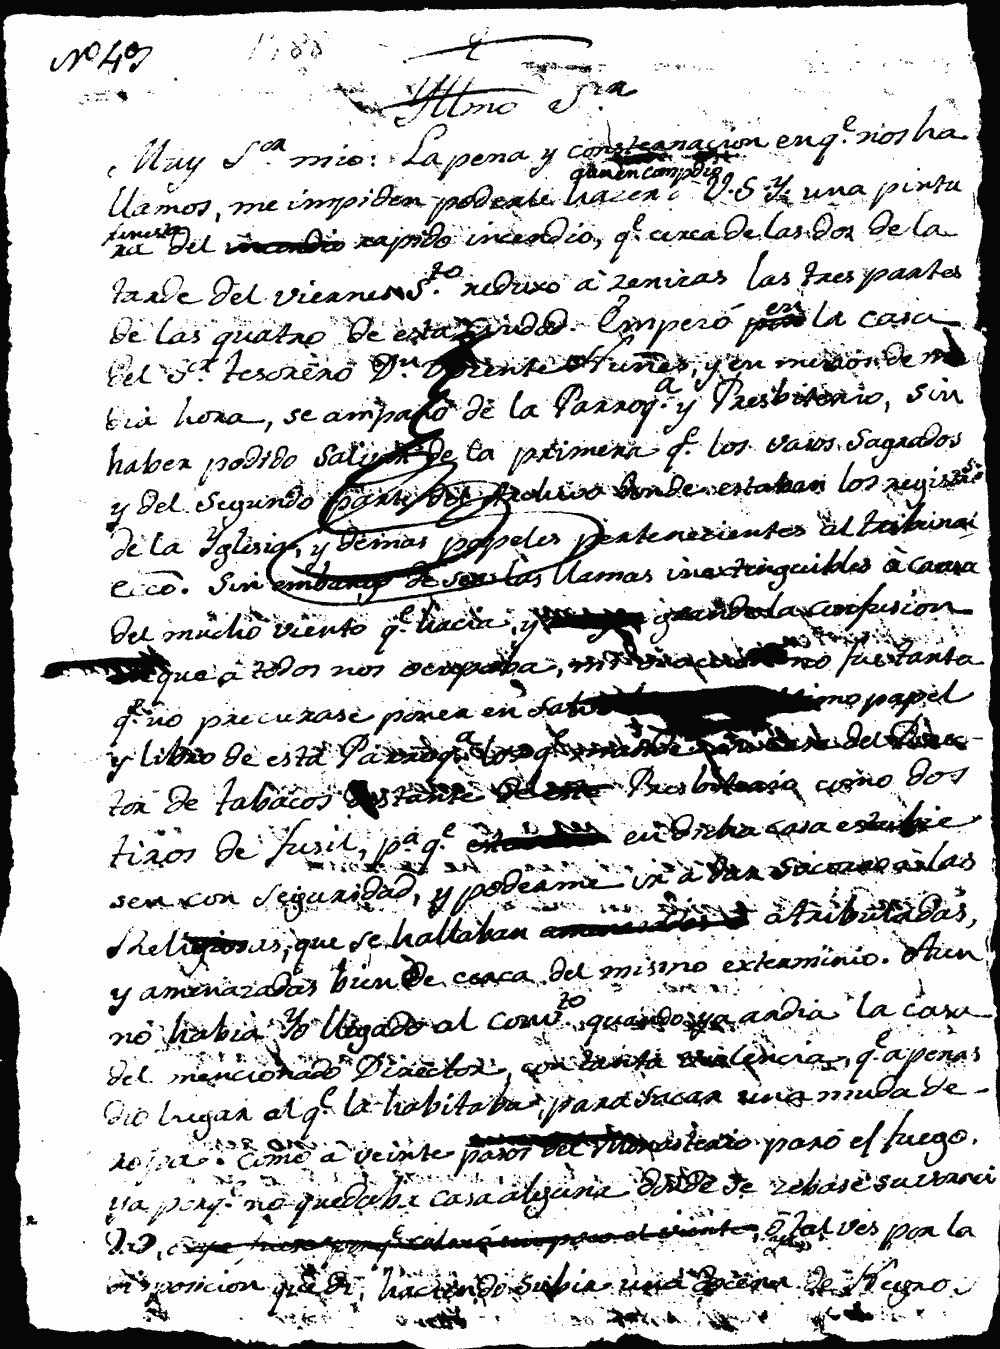 Nº 4º
1788
Yllmo Sr.a
Muy S.or mio: La pena y consternacion en q.e nos ha
llamos, me impiden poderle hacer à V.S.Y. una pintu
ra del rapido incendio, q.e cerca de las dos de la
tarde del viernes S.to reduxo à zenizas las tres partes
de las quatro de esta Ciudad. Emperó en la casa
del S.r tesorero D.n Vicente Nuñes, y en menos de me
dia hora, se amparó de la Parroq.a y Presbiterio, sin
haber podido salvar de la primera q.e los vasos sagrados
y del segundo parte del Archivo donde estaban los registros
de la Yglesia, y demas papeles pertenecientes al tribunal
ecco. Sin embargo de ser las llamas inextinguibles à causa
del mucho viento q.e hacia, y grande la confusion
que à todos nos ocupaba, no fue tanta
q.e no procurase poner en salvo papel
y libro de está Parroq.a los q.e del Direc-
tor de tabacos distante de este Presbiterio como dos
tiros de fusil, p.a q.e en dicha casa estubie
sen con seguridad, y poderme ir à dar socorro à las
Religiosas, que se hallaban atribuladas,
y amenazadas bien de cerca del mismo exterminio. Aun
no habia Yo llegado al conv.to quando ya ardia la casa
del mencionado Director, con tanta violencia, q.e apenas
dio lugar al q.e la habitaba, para sacar una muda de
ropa. Como à veinte pasos del Monasterio paró el fuego,
ya porq.e no quedaba casa alguna donde se zebase su voraci
dad, ò tal ves por la
disposicion que di, haciendo subir una docena de Negro